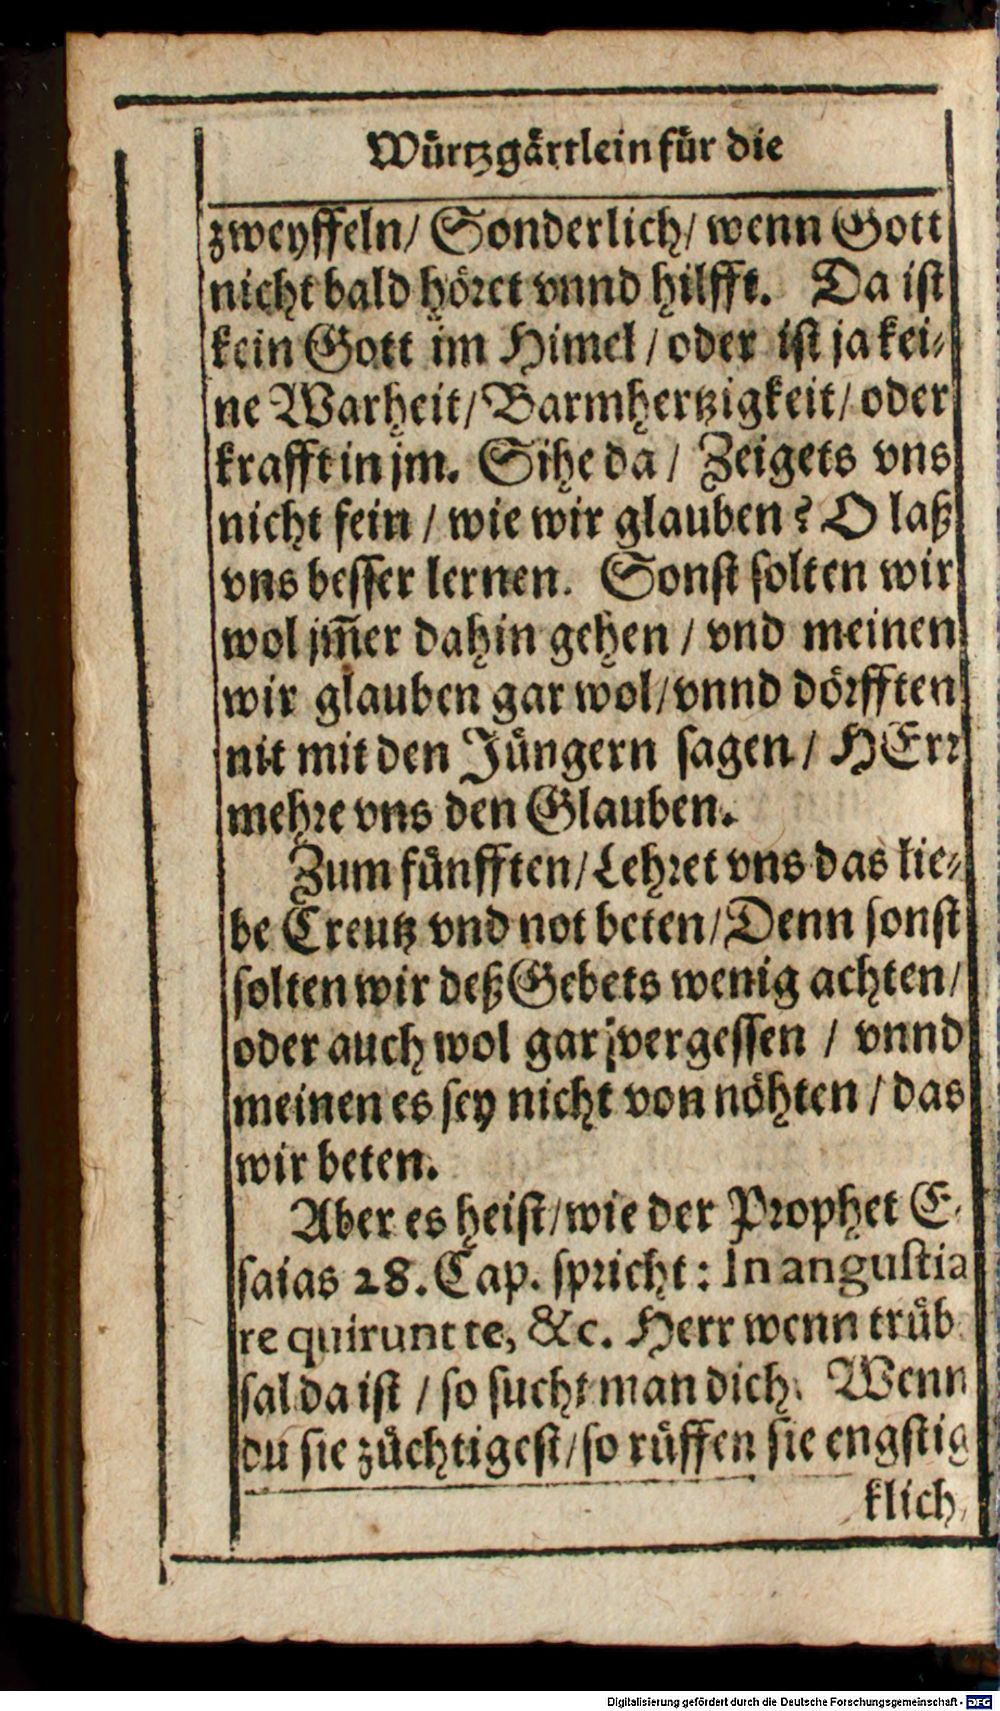 Würtzgärtlein für die
zweyffeln/ Sonderlich/ wenn Gott
nicht bald höret vnnd hilfft. Da ist
kein Gott im Himel / oder ist ja kei-
ne Warheit/ Barmhertzigkeit/ oder
krafft in jm. Sihe da / Zeigets vns
nicht fein / wie wir glauben? O laß
vns besser lernen. Sonst solten wir
wol jm̃er dahin gehen / vnd meinen
wir glauben gar wol/ vnnd dörfften
nit mit den Jüngern sagen / HErr
mehre vns den Glauben.
Zum fünfften/ Lehret vns das lie-
be Creutz vnd not beten/ Denn sonst
solten wir deß Gebets wenig achten/
oder auch wol gar vergessen / vnnd
meinen es sey nicht von nöhten / das
wir beten.
Aber es heist/ wie der Prophet E-
saias 28. Cap. spricht: In angustia
re quirunt te, &c. Herr wenn trüb
sal da ist / so sucht man dich. Wenn
du sie züchtigest/ so rüffen sie engstig
klich,
Digitalisierung gefördert durch die Deutsche Forschungsgemeinschaft - DFG